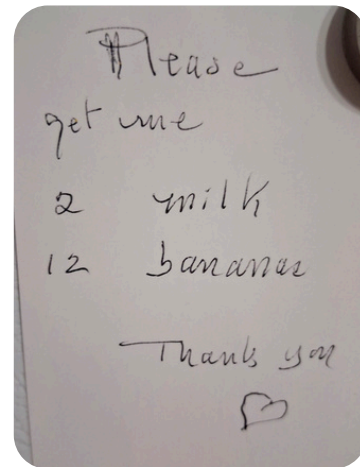 Please
get me
2 milk
12 bananas
Thank you